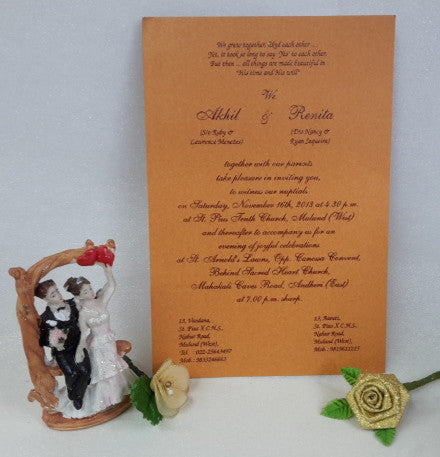 We grew together, liked each other ...
Yet, it took so long to say 'Yes' to each other.
But then ... all things are made beautiful in
"His time and His will"
We
Akhil & Renita
(S/o Ruby & (D/o Nancy &
Lawrence Menezes) Ryan Sequeira)
together with our parents
take pleasure in inviting you,
to witness our nuptials
on Saturday, November 16th, 2013 at 4.30 p.m.
at St. Pius Tenth Church, Mulund (West)
and thereafter to accompany us for an
evening of joyful celebrations
at St. Arnold's Lawns, Opp. Canossa Convent,
Behind Sacred Heart Church,
Mahakali Caves Road, Andheri (East)
at 7.00 p.m. sharp.
St. Pius X C.H.S., St. Pius X C.H.S.,
Nahur Road, Nahur Road,
Mulund (West), Mulund (West),
Tel. : 022-25643497